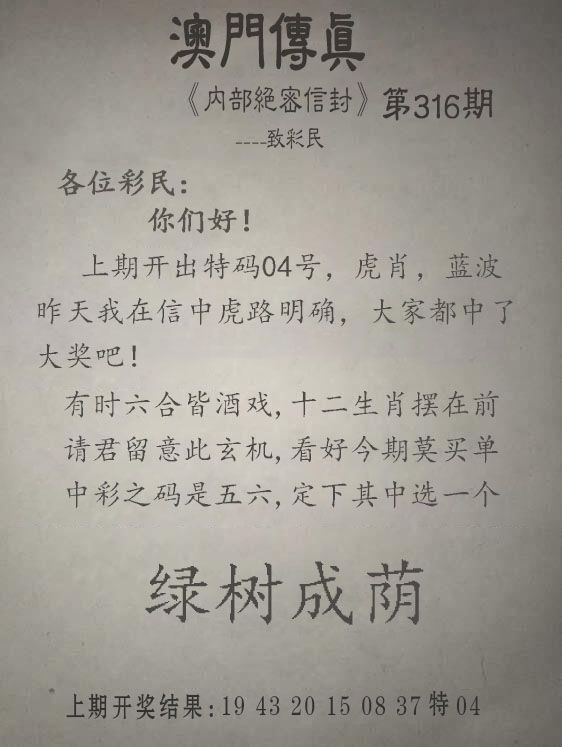 澳門傳真
《内部絕密信封》第316期
----致彩民
各位彩民：
你们好！
上期开出特码04号，虎肖，蓝波
昨天我在信中虎路明确，大家都中了
大奖吧！
有时六合皆酒戏,十二生肖摆在前
请君留意此玄机,看好今期莫买单
中彩之码是五六,定下其中选一个
绿树成荫
上期开奖结果:19 43 20 15 08 37特04